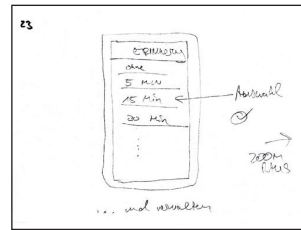 23
ERINNERN
ohne
5 Min
15 Min
Auswahl
30 Min
ZOOM
RAUS
... und verwalten